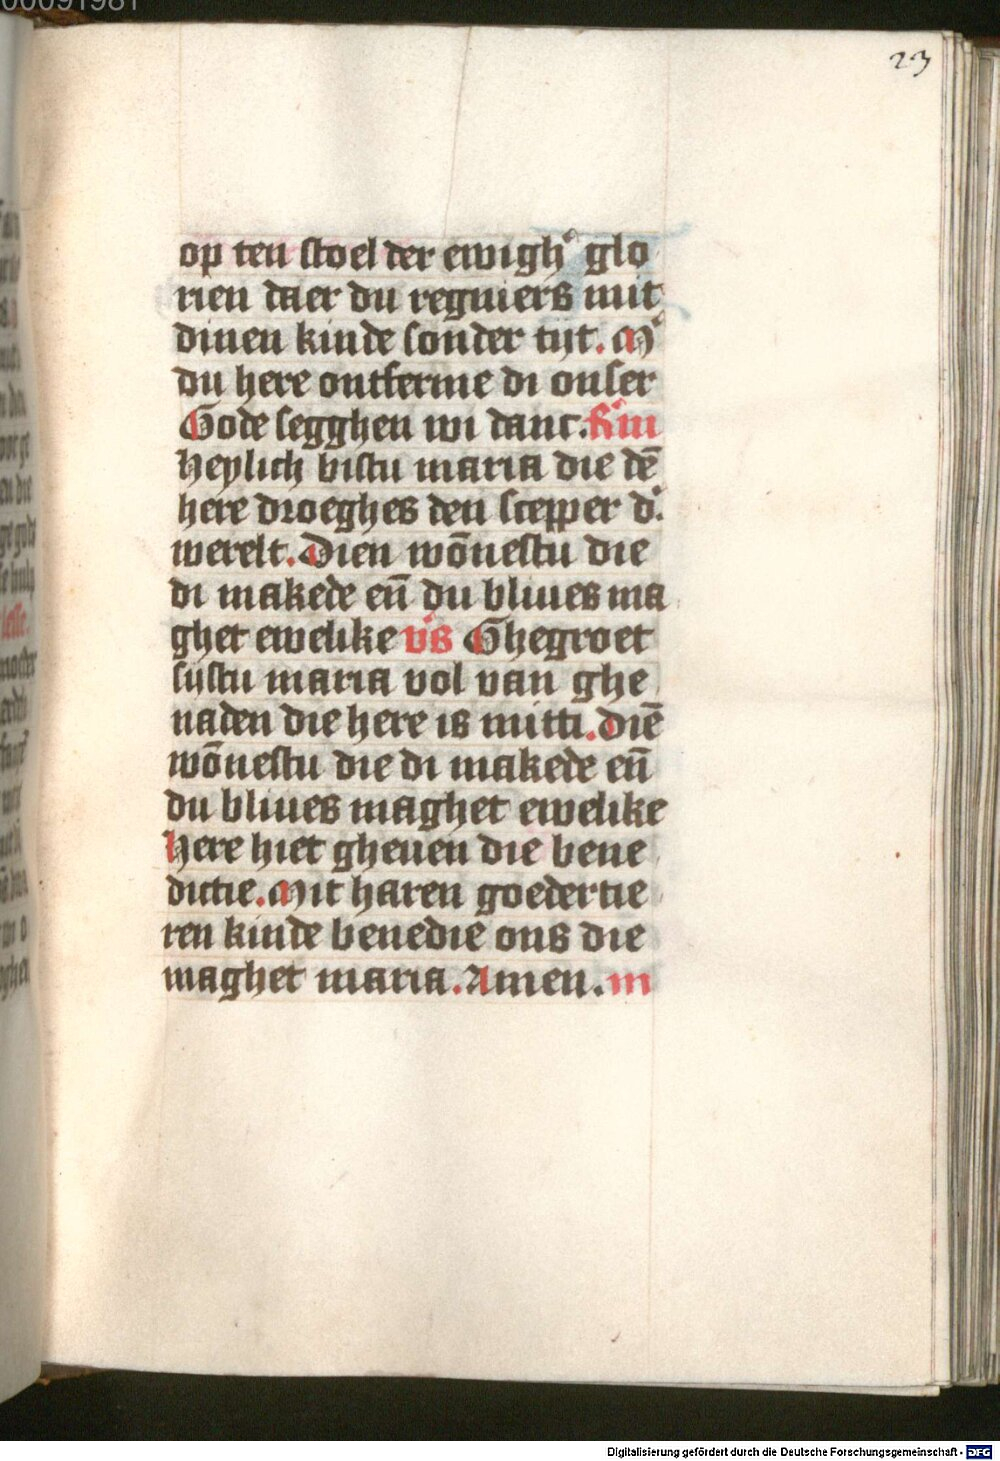 23
op ten stoel der ewigh' glo
rien daer du regniers mit
dinen kinde sonder tijt. M'
du here ontferme di onser
Gode segghen wi danc. R'm
heylich bistu maria die dē
here droeghes den scepper d'.
werelt. Dien wōnestu die
di makede eñ du bliues ma
ghet ewelike v's Ghegroet
sijstu maria vol van ghe
naden die here is mitti. Diē
wōnestu die di makede eñ
du bliues maghet ewelike
Here hiet gheuen die bene
dictie. Mit haren goedertie
ren kinde benedie ons die
maghet maria. Amen. m
Digitalisierung gefördert durch die Deutsche Forschungsgemeinschaft - DFG